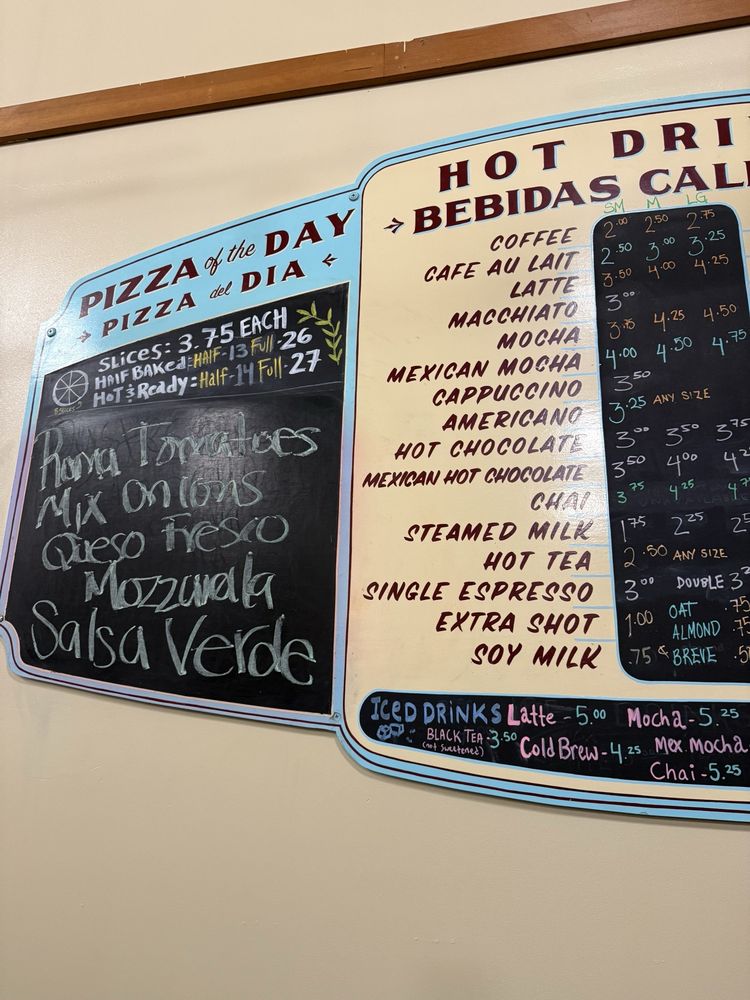 PIZZA of the DAY
PIZZA del DIA
SLICES: 3.75 EACH
HALF BAKED: HALF-13 Full-26
HOT & Ready: Half-14 Full-27
8 SLICES
Roma Tomatoes
Mix Onions
Queso Fresco
Mozzarella
Salsa Verde
HOT DRI
BEBIDAS CALI
SM M LG
COFFEE 2.00 2.50 2.75
CAFE AU LAIT 2.50 3.00 3.25
LATTE 3.50 4.00 4.25
MACCHIATO 3.00
MOCHA 3.75 4.25 4.50
MEXICAN MOCHA 4.00 4.50 4.75
CAPPUCCINO 3.50
AMERICANO 3.25 ANY SIZE
HOT CHOCOLATE 3.00 3.50 3.75
MEXICAN HOT CHOCOLATE 3.50 4.00
CHAI 3.75 4.25
STEAMED MILK 1.75 2.25
HOT TEA 2.50 ANY SIZE
SINGLE ESPRESSO 3.00 DOUBLE
EXTRA SHOT 1.00 OAT .75
ALMOND
SOY MILK .75 & BREVE
ICED DRINKS Latte - 5.00 Mocha - 5.25
BLACK TEA - 3.50 Cold Brew - 4.25 Mex Mocha
(not sweetened)
Chai - 5.25